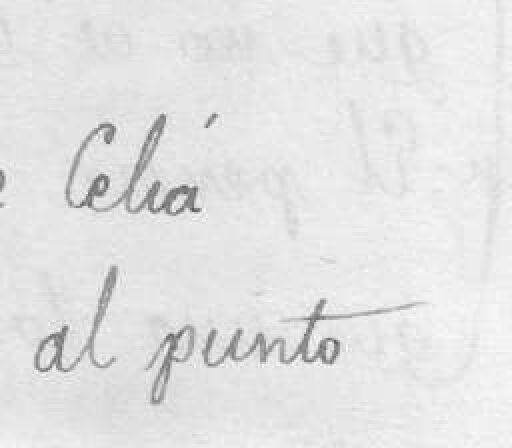 Celiá
al punto